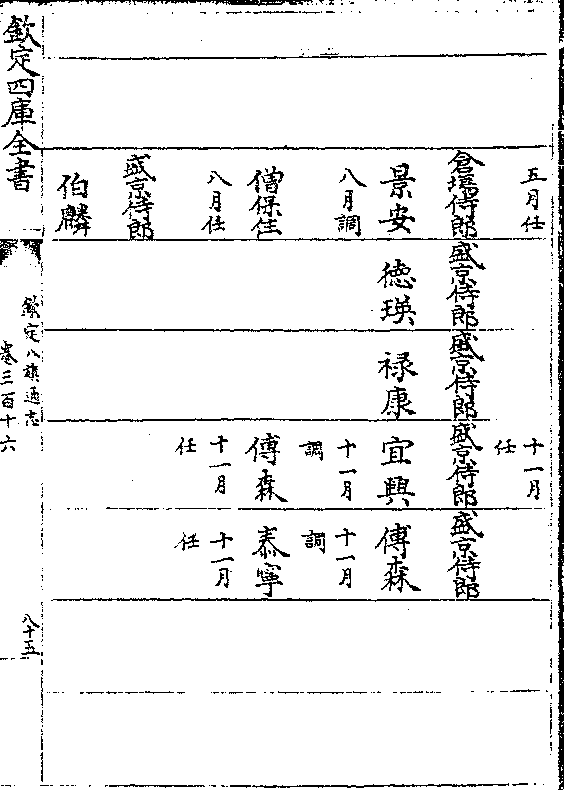 五月任
倉場侍郎
景安
八月調
僧保住
八月任
盛京侍郎
伯麟
盛京侍郎
徳瑛
盛京侍郎
禄康
十一月
任
盛京侍郎
宜興
十一月
調
傅森
十一月
任
盛京侍郎
傅森
十一月
調
泰寧
十一月
任
欽定四庫全書
欽定八旗通志
卷三百十六
八十五